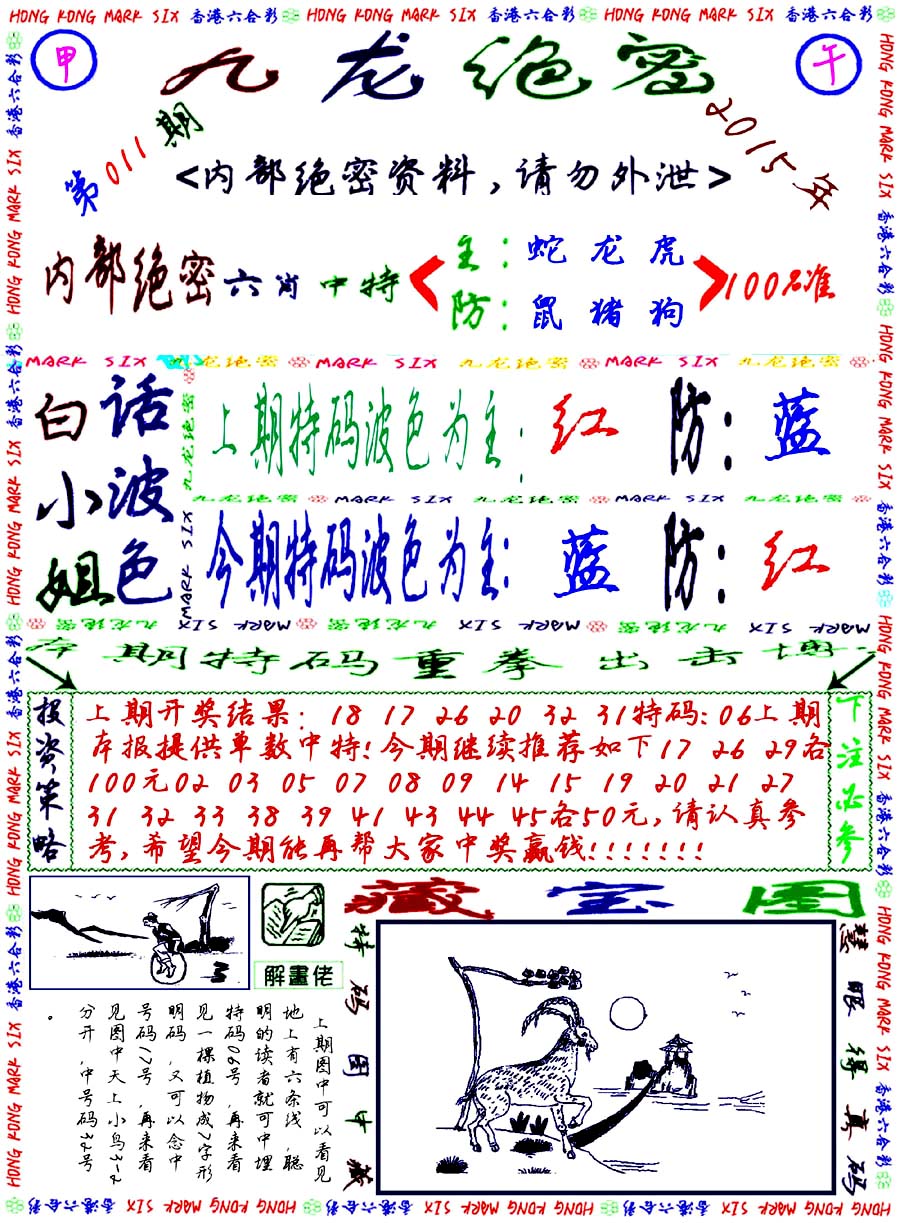 HONG KONG MARK SIX 香港六合彩 HONG KONG MARK SIX 香港六合彩 HONG KONG MARK SIX 香港六合彩
甲
九龙绝密
午
第011期
2015年
<内部绝密资料,请勿外泄>
内部绝密六肖中特
主:蛇 龙 虎
防:鼠 猪 狗
100%准
MARK SIX 九龙绝密 MARK SIX 九龙绝密 MARK SIX 九龙绝密
白小姐
话波色
上期特码波色为主:红 防:蓝
九龙绝密 MARK SIX 九龙绝密 MARK SIX 九龙绝密
今期特码波色为主:蓝 防:红
九龙绝密 MARK SIX 九龙绝密 MARK SIX 九龙绝密 MARK SIX
本期特码重拳出击博
投资策略
上期开奖结果:18 17 26 20 32 31特码:06上期
本报提供单数中特!今期继续推荐如下17 26 29各
100元02 03 05 07 08 09 14 15 19 20 21 27
31 32 33 38 39 41 43 44 45各50元,请认真参
考,希望今期能再帮大家中奖赢钱!!!!!!!
下注必参
解畫佬
藏宝图
特码图中藏
慧眼得真码
上期图中可以看见
地上有六条线,聪
明的读者就可中埋
特码06号,再来看
见一棵植物成7字形
明码,又可以念中
号码17号,再来看
见图中天上小鸟3-2
分开,中号码32号
。
HONG KONG MARK SIX 香港六合彩 HONG KONG MARK SIX 香港六合彩 HONG KONG MARK SIX 香港六合彩